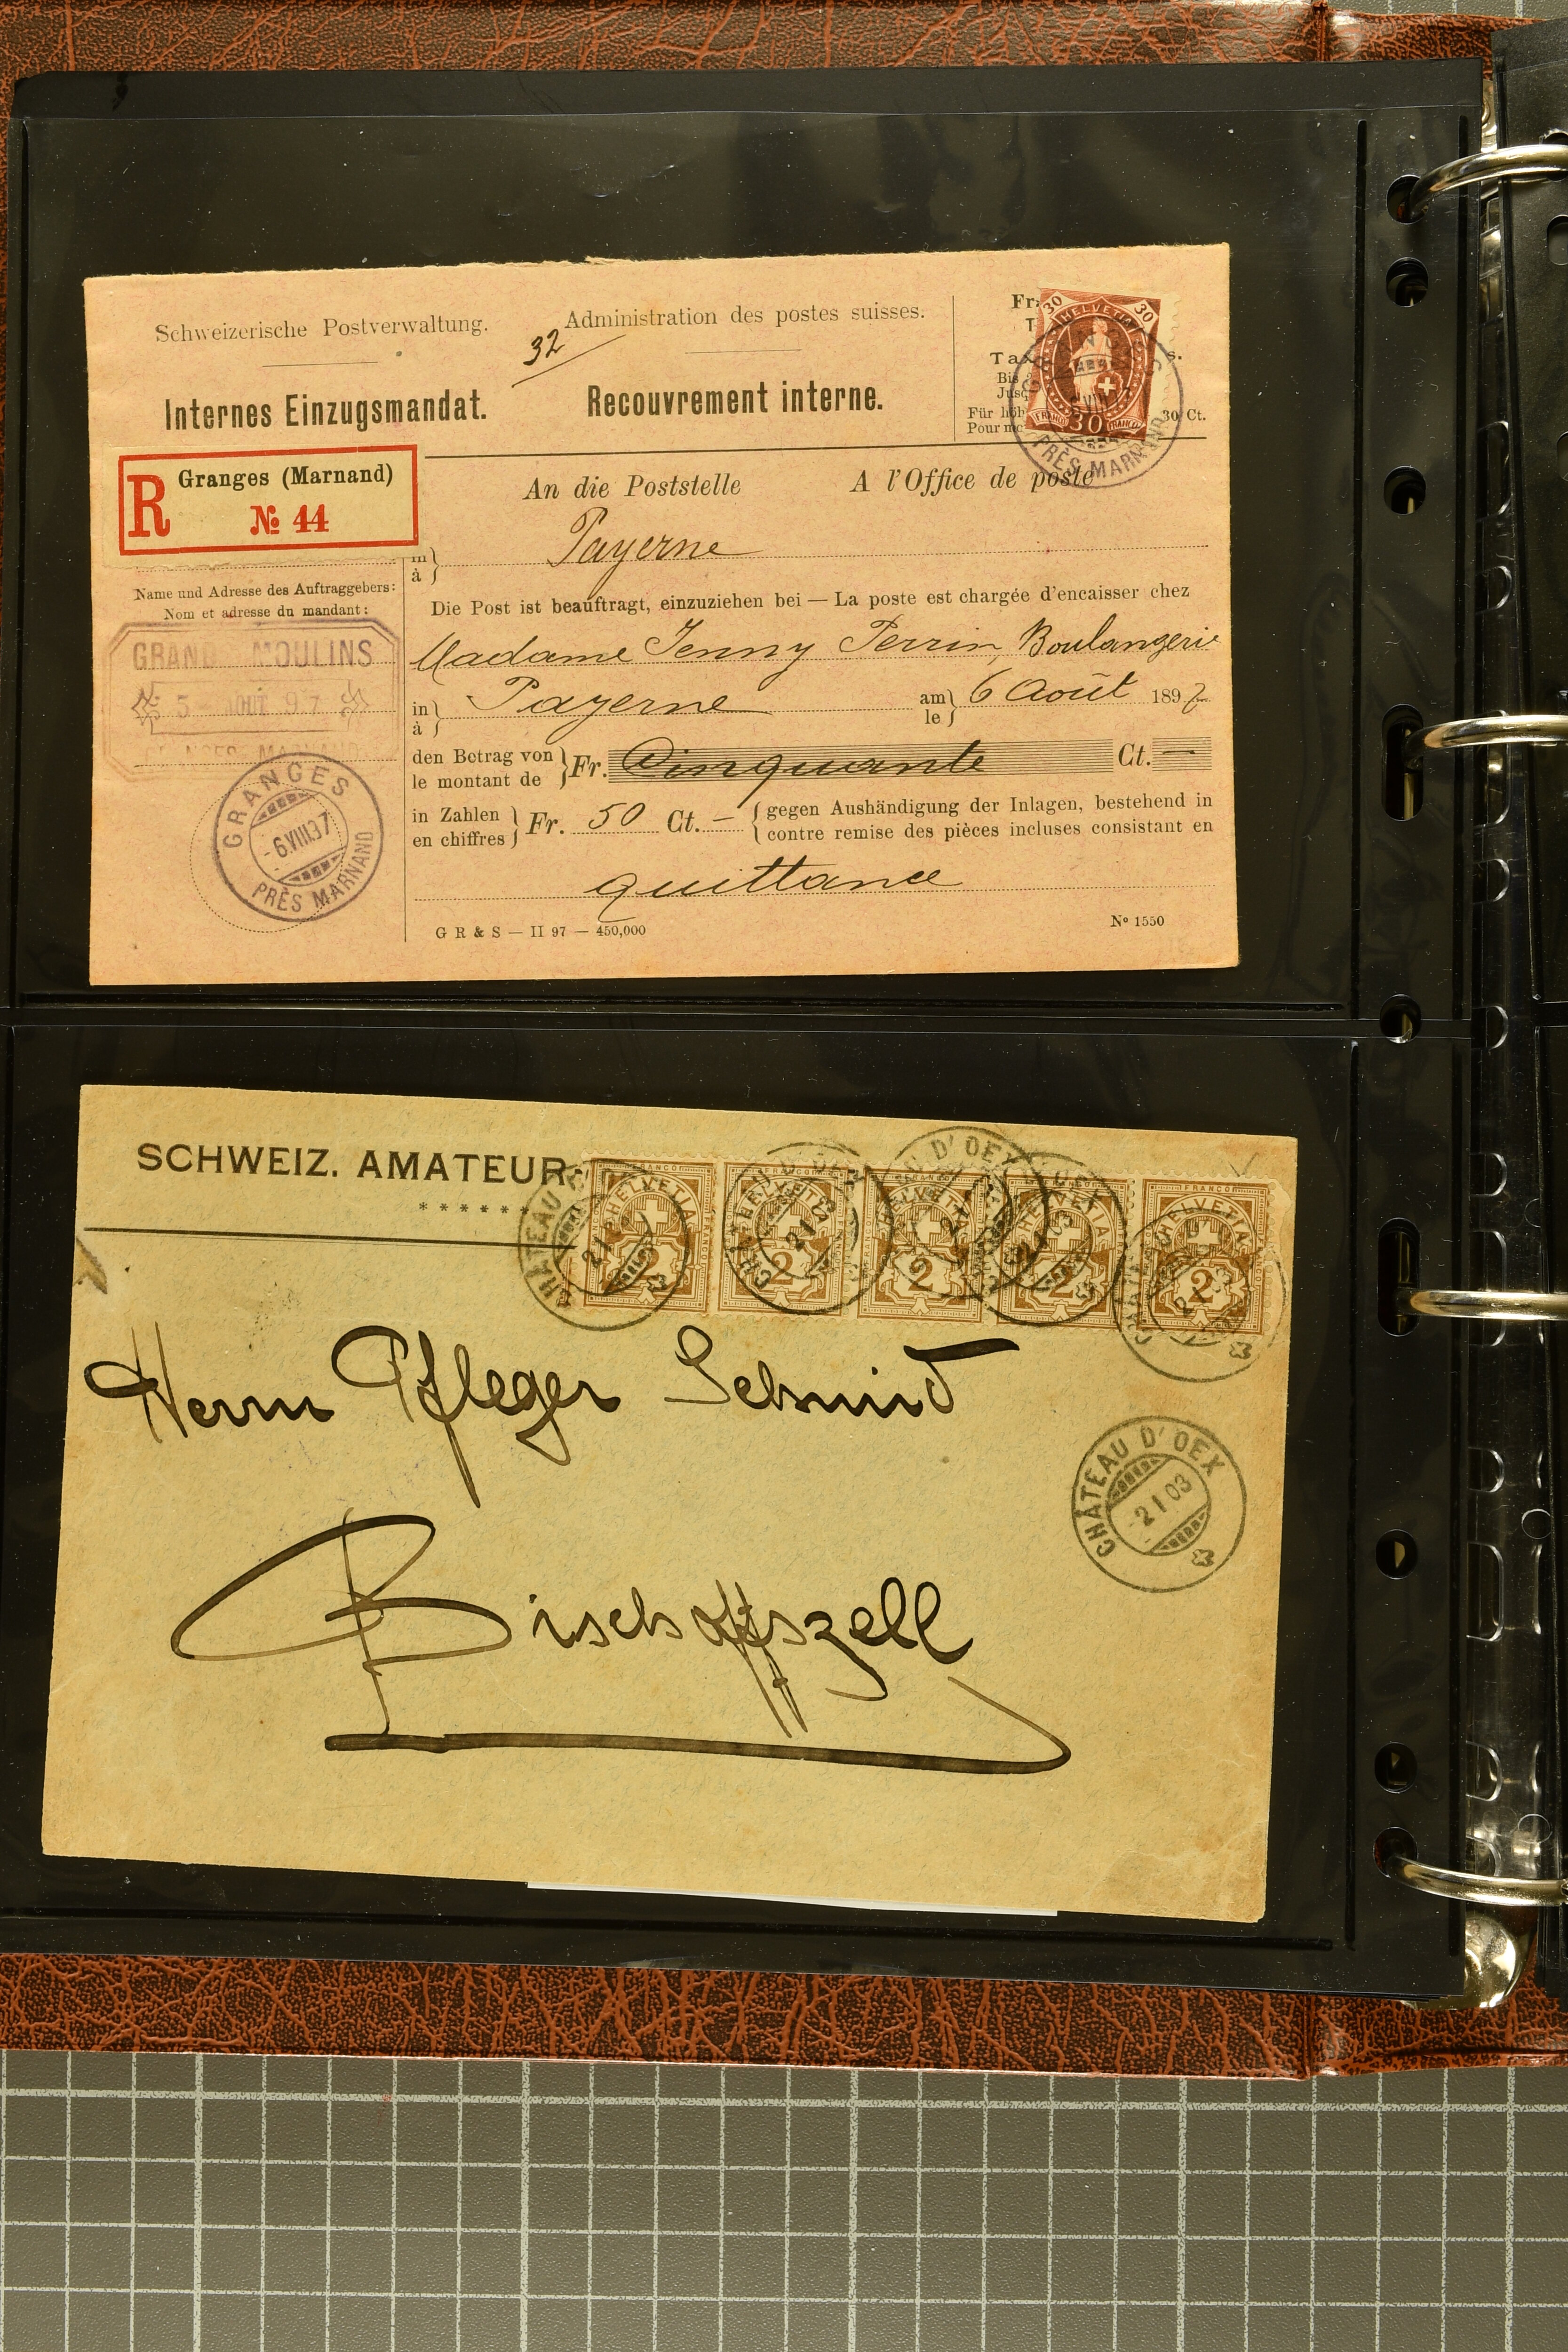 Schweizerische Postverwaltung.
Administration des postes suisses.
32
Internes Einzugsmandat.
Recouvrement interne.
30 HELVETIA 30
FRANCO 30 FRANCO
30 Ct.
PRÈS MARNAND
R Granges (Marnand)
№ 44
An die Poststelle
A l'Office de poste
in
à
Payerne
Name und Adresse des Auftraggebers:
Nom et adresse du mandant:
Die Post ist beauftragt, einzuziehen bei — La poste est chargée d'encaisser chez
Madame Jenny Perrin, Boulangerie
GRANDS MOULINS
5 AOUT 97
in
à
Payerne
am
le
6 Août 1897
den Betrag von
le montant de
Fr. Cinquante Ct. —
in Zahlen
en chiffres
Fr. 50 Ct. —
gegen Aushändigung der Inlagen, bestehend in
contre remise des pièces incluses consistant en
GRANGES
6.VIII.97
PRÈS MARNAND
quittance
G R & S — II 97 — 450,000
Nº 1550
SCHWEIZ. AMATEUR
******
FRANCO HELVETIA 2
FRANCO HELVETIA 2
HELVETIA 2
HELVETIA 2
FRANCO HELVETIA 2
Herrn Pfleger Schmid
CHÂTEAU D'OEX
2 I 03
Bischoffszell